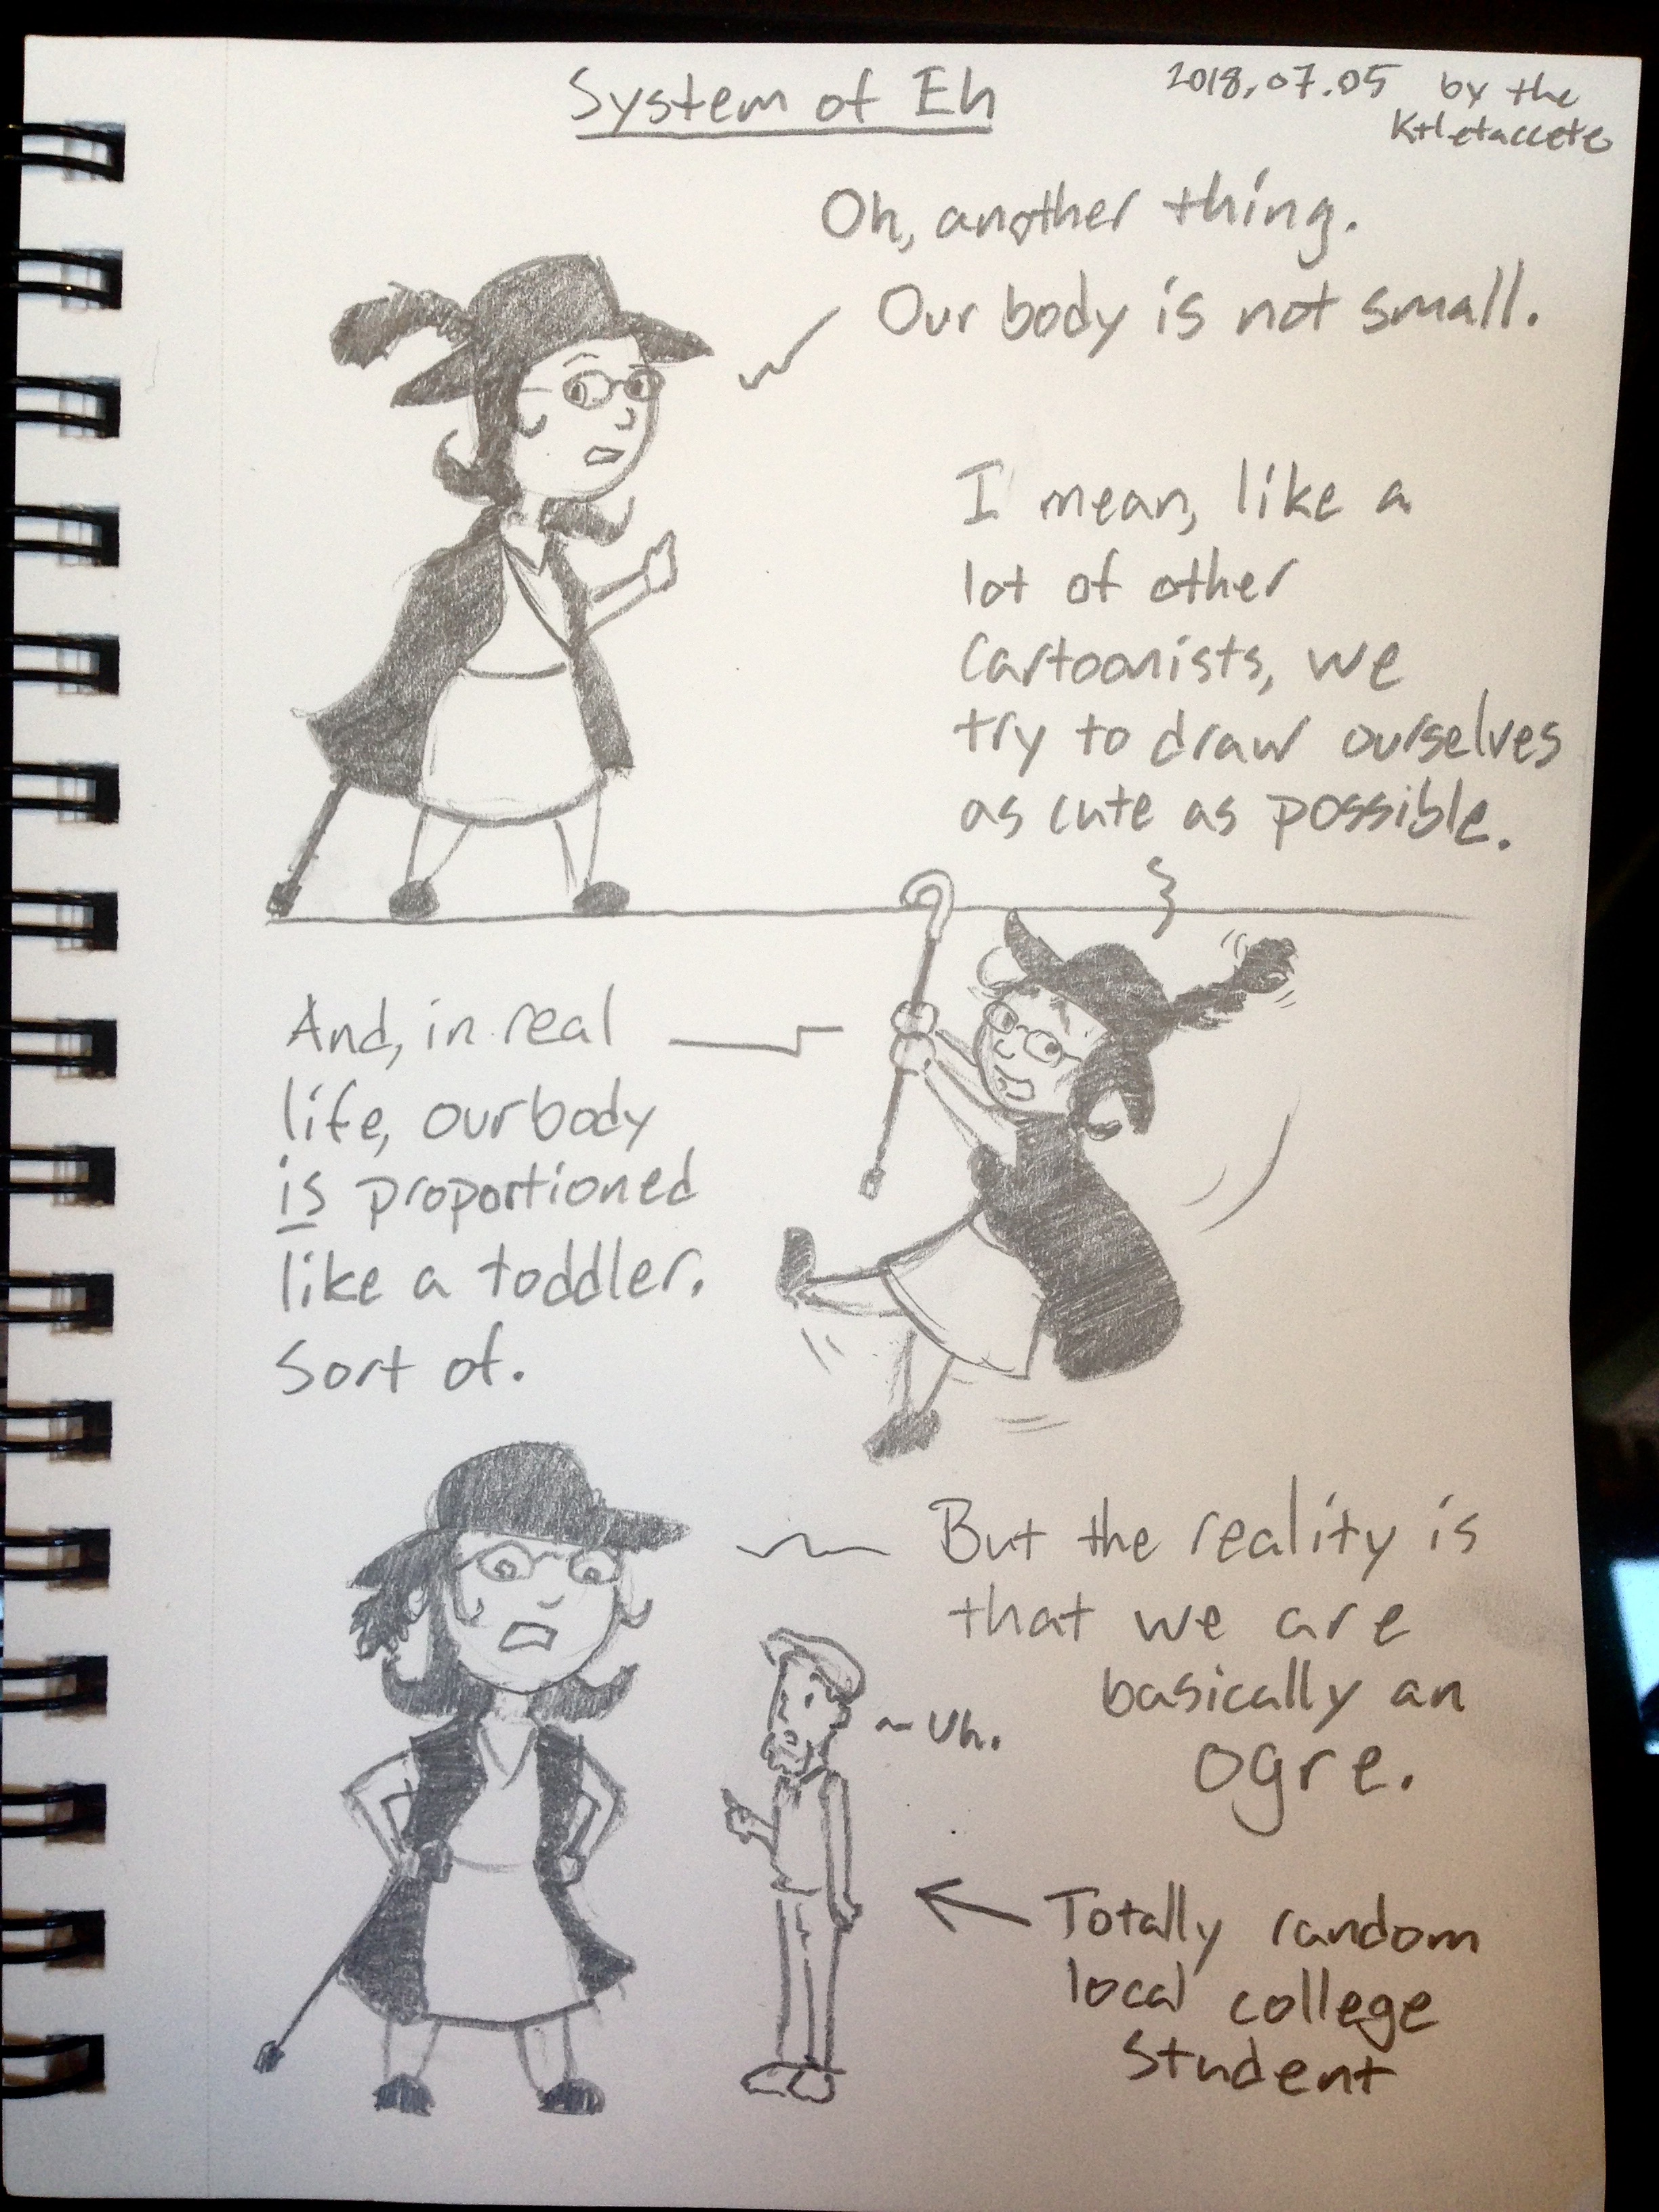 System of Eh
2018.07.05 by the
Ktletaccete
Oh, another thing.
Our body is not small.
I mean, like a
lot of other
cartoonists, we
try to draw ourselves
as cute as possible.
And, in real
life, our body
is proportioned
like a toddler.
Sort of.
But the reality is
that we are
basically an
ogre.
Uh.
Totally random
local college
student